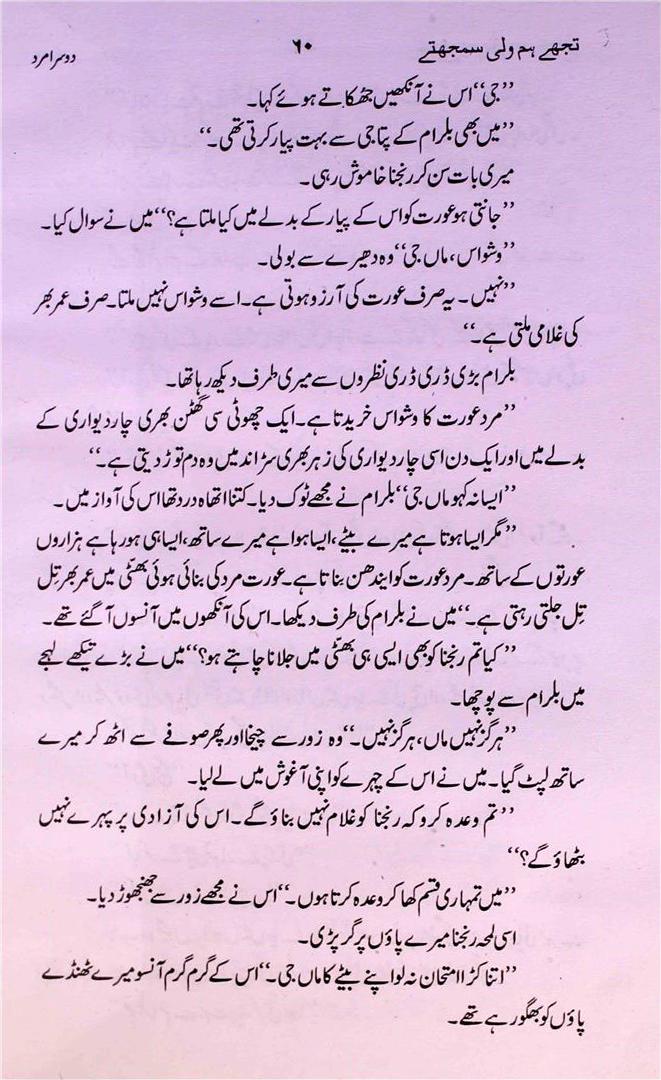 تجھے ہم ولی سمجھتے ۶۰ دوسرا مرد
’’جی‘‘ اس نے آنکھیں جھکاتے ہوئے کہا۔
’’میں بھی بلرام کے پتا جی سے بہت پیار کرتی تھی۔‘‘
میری بات سن کر رنجنا خاموش رہی۔
’’جانتی ہو عورت کو اس کے پیار کے بدلے میں کیا ملتا ہے؟‘‘ میں نے سوال کیا۔
’’وشواس، ماں جی‘‘ وہ دھیرے سے بولی۔
’’نہیں۔ یہ صرف عورت کی آرزو ہوتی ہے۔ اسے وشواس نہیں ملتا۔ صرف عمر بھر
کی غلامی ملتی ہے۔‘‘
بلرام بڑی ڈری ڈری نظروں سے میری طرف دیکھ رہا تھا۔
’’مرد عورت کا وشواس خریدتا ہے۔ ایک چھوٹی سی گھٹن بھری چار دیواری کے
بدلے میں اور ایک دن اسی چار دیواری کی زہر بھری سڑاند میں وہ دم توڑ دیتی ہے۔‘‘
’’ایسا نہ کہو ماں جی‘‘ بلرام نے مجھے ٹوک دیا۔ کتنا اتھاہ درد تھا اس کی آواز میں۔
’’مگر ایسا ہوتا ہے میرے بیٹے، ایسا ہوا ہے میرے ساتھ، ایسا ہی ہو رہا ہے ہزاروں
عورتوں کے ساتھ۔ مرد عورت کو ایندھن بناتا ہے۔ عورت مرد کی بنائی ہوئی بھٹی میں عمر بھر تِل
تِل جلتی رہتی ہے۔‘‘ میں نے بلرام کی طرف دیکھا۔ اس کی آنکھوں میں آنسوں آگئے تھے۔
’’کیا تم رنجنا کو بھی ایسی ہی بھٹی میں جلانا چاہتے ہو؟‘‘ میں نے بڑے تیکھے لہجے
میں بلرام سے پوچھا۔
’’ہرگز نہیں ماں، ہرگز نہیں۔‘‘ وہ زور سے چیخا اور پھر صوفے سے اٹھ کر میرے
ساتھ لپٹ گیا۔ میں نے اس کے چہرے کو اپنی آغوش میں لے لیا۔
’’تم وعدہ کرو کہ رنجنا کو غلام نہیں بناؤ گے۔ اس کی آزادی پر پہرے نہیں
بٹھاؤ گے؟‘‘
’’میں تمہاری قسم کھا کر وعدہ کرتا ہوں۔‘‘ اس نے مجھے زور سے جھنجھوڑ دیا۔
اسی لمحہ رنجنا میرے پاؤں پر گر پڑی۔
’’اتنا کڑا امتحان نہ لو اپنے بیٹے کا ماں جی۔‘‘ اس کے گرم گرم آنسو میرے ٹھنڈے
پاؤں کو بھگو رہے تھے۔